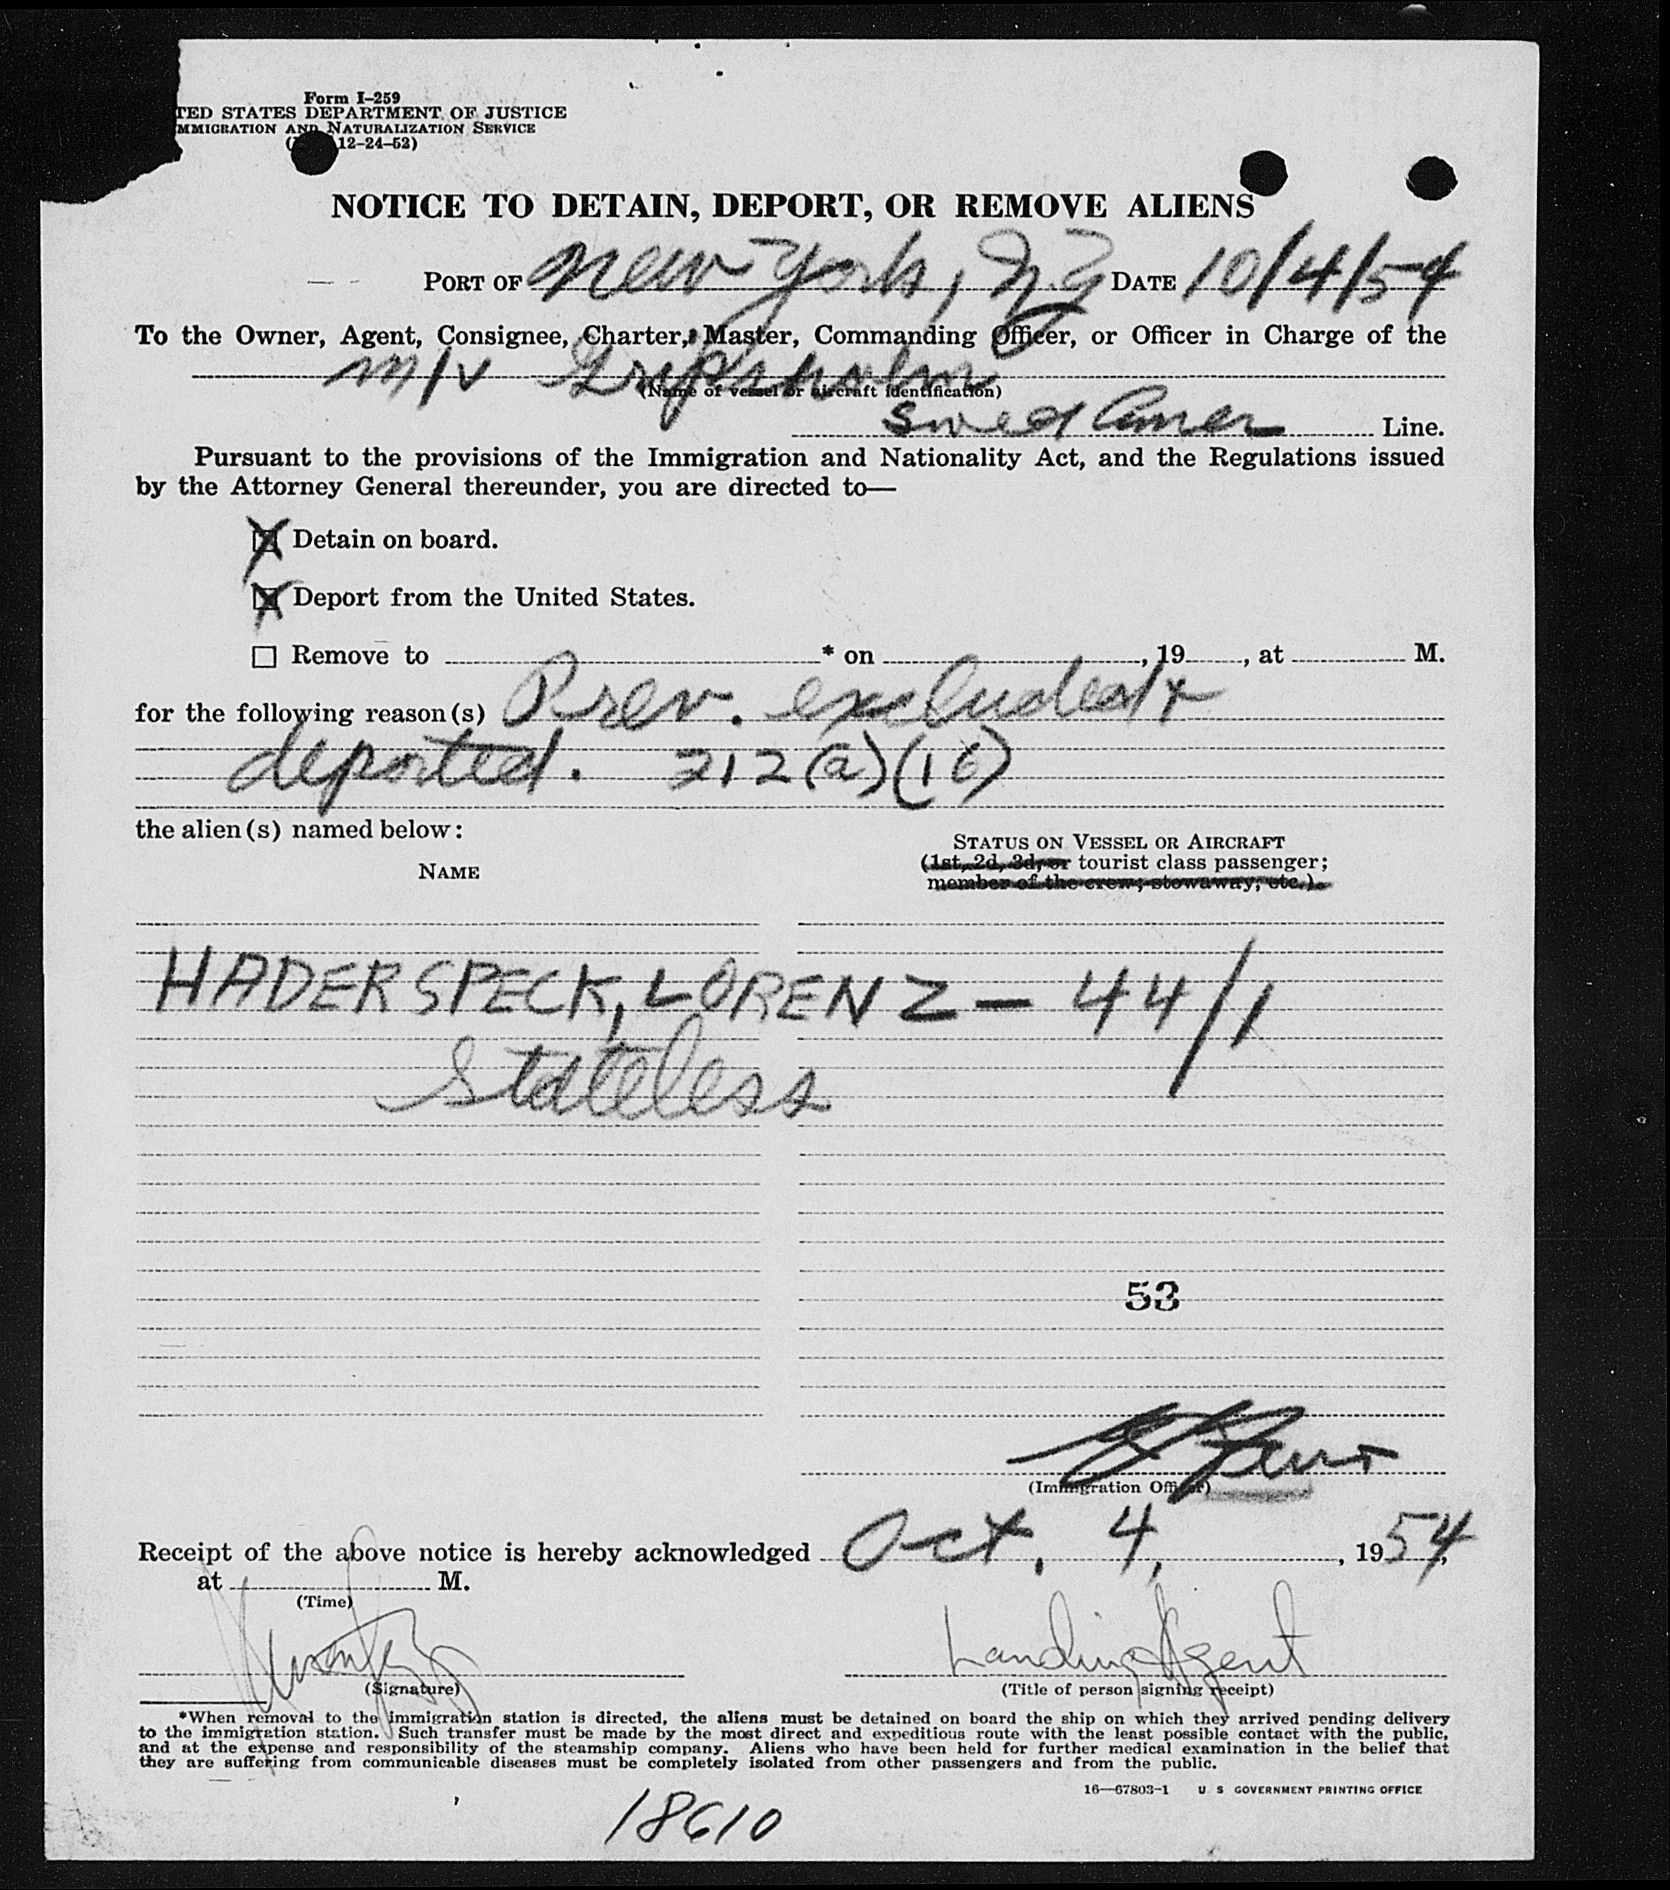 Form I-259
TED STATES DEPARTMENT OF JUSTICE
MMIGRATION AND NATURALIZATION SERVICE
( 12-24-52)
NOTICE TO DETAIN, DEPORT, OR REMOVE ALIENS
PORT OF New York, NY DATE 10/4/54
To the Owner, Agent, Consignee, Charter, Master, Commanding Officer, or Officer in Charge of the
M/V Gripsholm
(Name of vessel or aircraft identification)
Swed Amer Line.
Pursuant to the provisions of the Immigration and Nationality Act, and the Regulations issued
by the Attorney General thereunder, you are directed to—
X Detain on board.
X Deport from the United States.
☐ Remove to * on , 19 , at M.
for the following reason(s) Prev. excluded &
deported. 212(a)(16)
the alien(s) named below:
STATUS ON VESSEL OR AIRCRAFT
(1st, 2d, 3d, or tourist class passenger;
NAME
member of the crew; stowaway, etc.)
HADERSPECK, LORENZ — 44/1
Stateless
53
(Immigration Officer)
Receipt of the above notice is hereby acknowledged Oct. 4, , 1954,
at M.
(Time)
Landing Agent
(Signature) (Title of person signing receipt)
*When removal to the immigration station is directed, the aliens must be detained on board the ship on which they arrived pending delivery
to the immigration station. Such transfer must be made by the most direct and expeditious route with the least possible contact with the public,
and at the expense and responsibility of the steamship company. Aliens who have been held for further medical examination in the belief that
they are suffering from communicable diseases must be completely isolated from other passengers and from the public.
16—67803-1 U S GOVERNMENT PRINTING OFFICE
18610